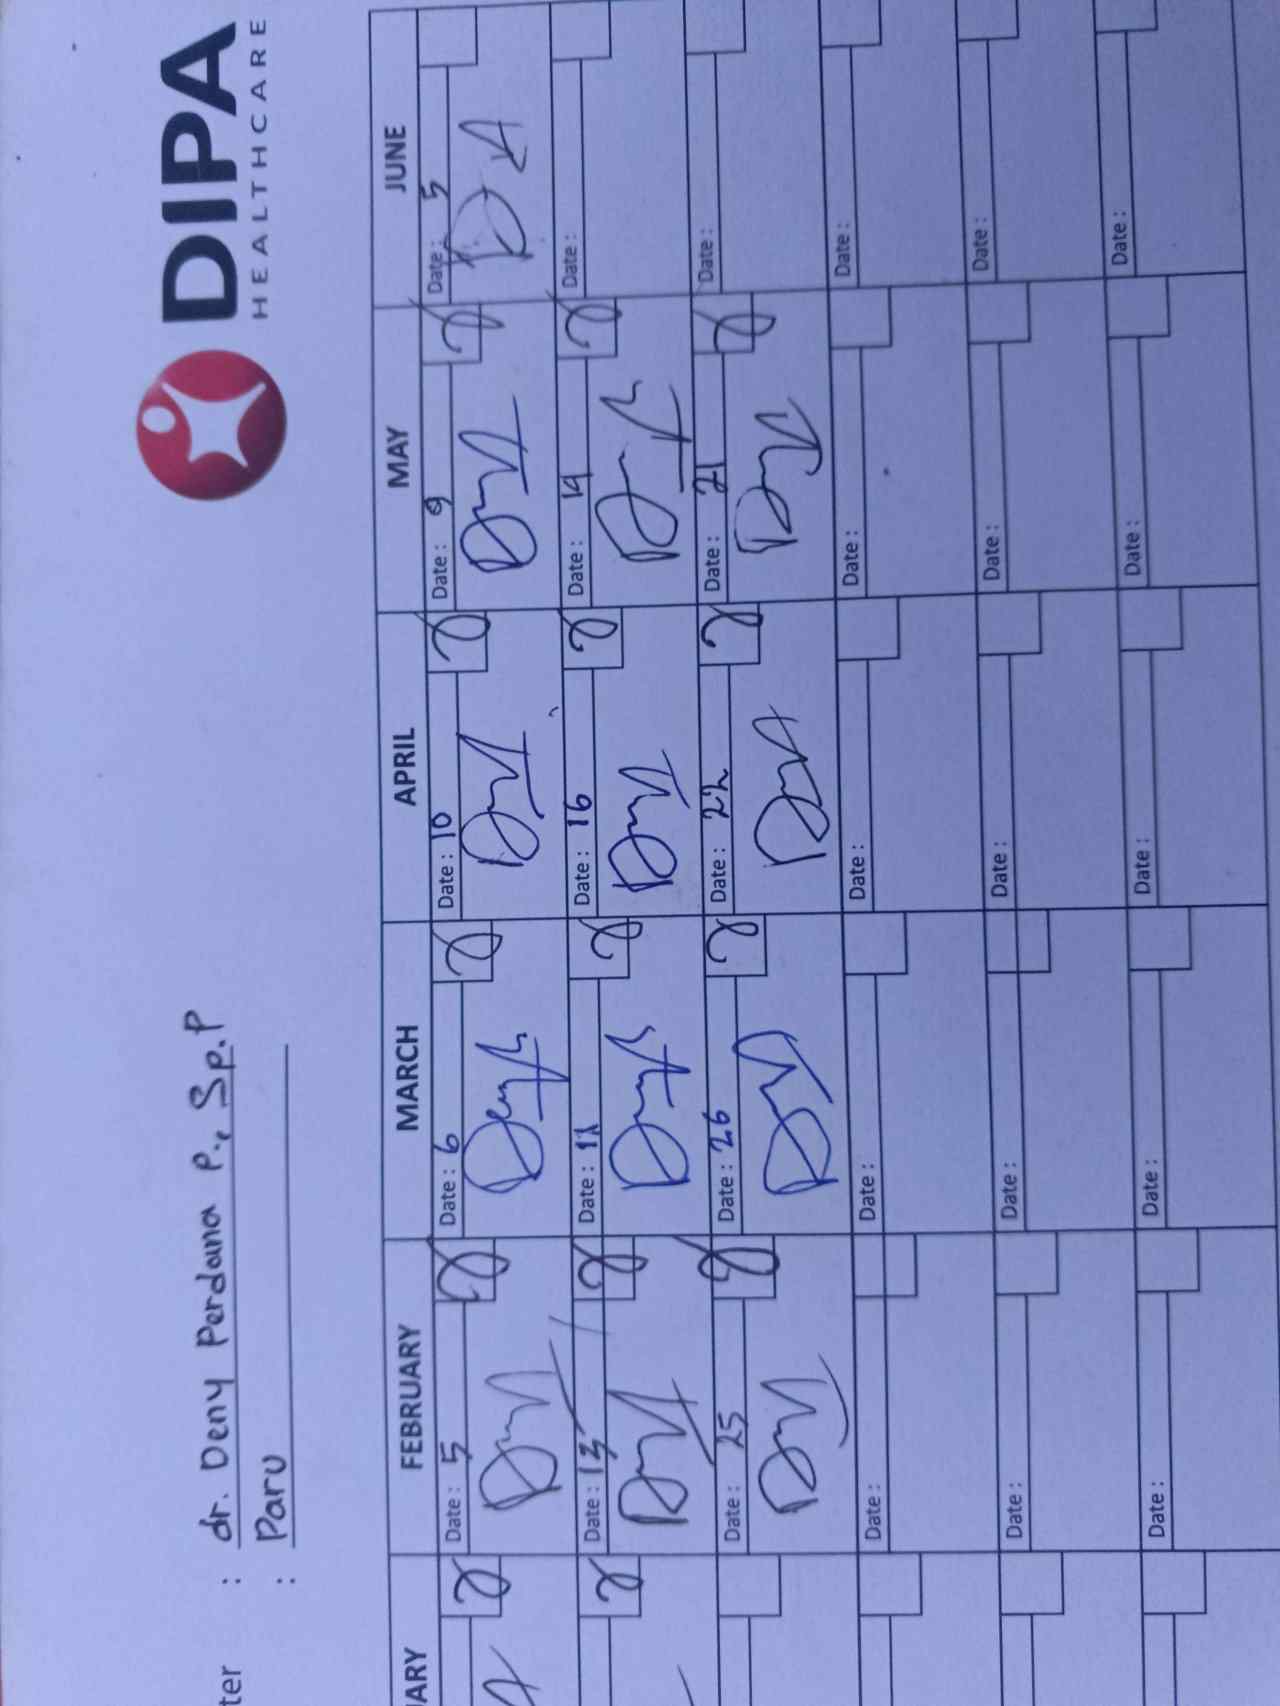 DIPA
HEALTHCARE
ter : dr. Deny Perdana P., Sp.P
: Paru
ARY FEBRUARY MARCH APRIL MAY JUNE
Date : 5 Date : 6 Date : 10 Date : 9 Date : 5
Date : 13 Date : 11 Date : 16 Date : 19 Date :
Date : 25 Date : 26 Date : 22 Date : 21 Date :
Date : Date : Date : Date : Date :
Date : Date : Date : Date : Date :
Date : Date : Date : Date : Date :